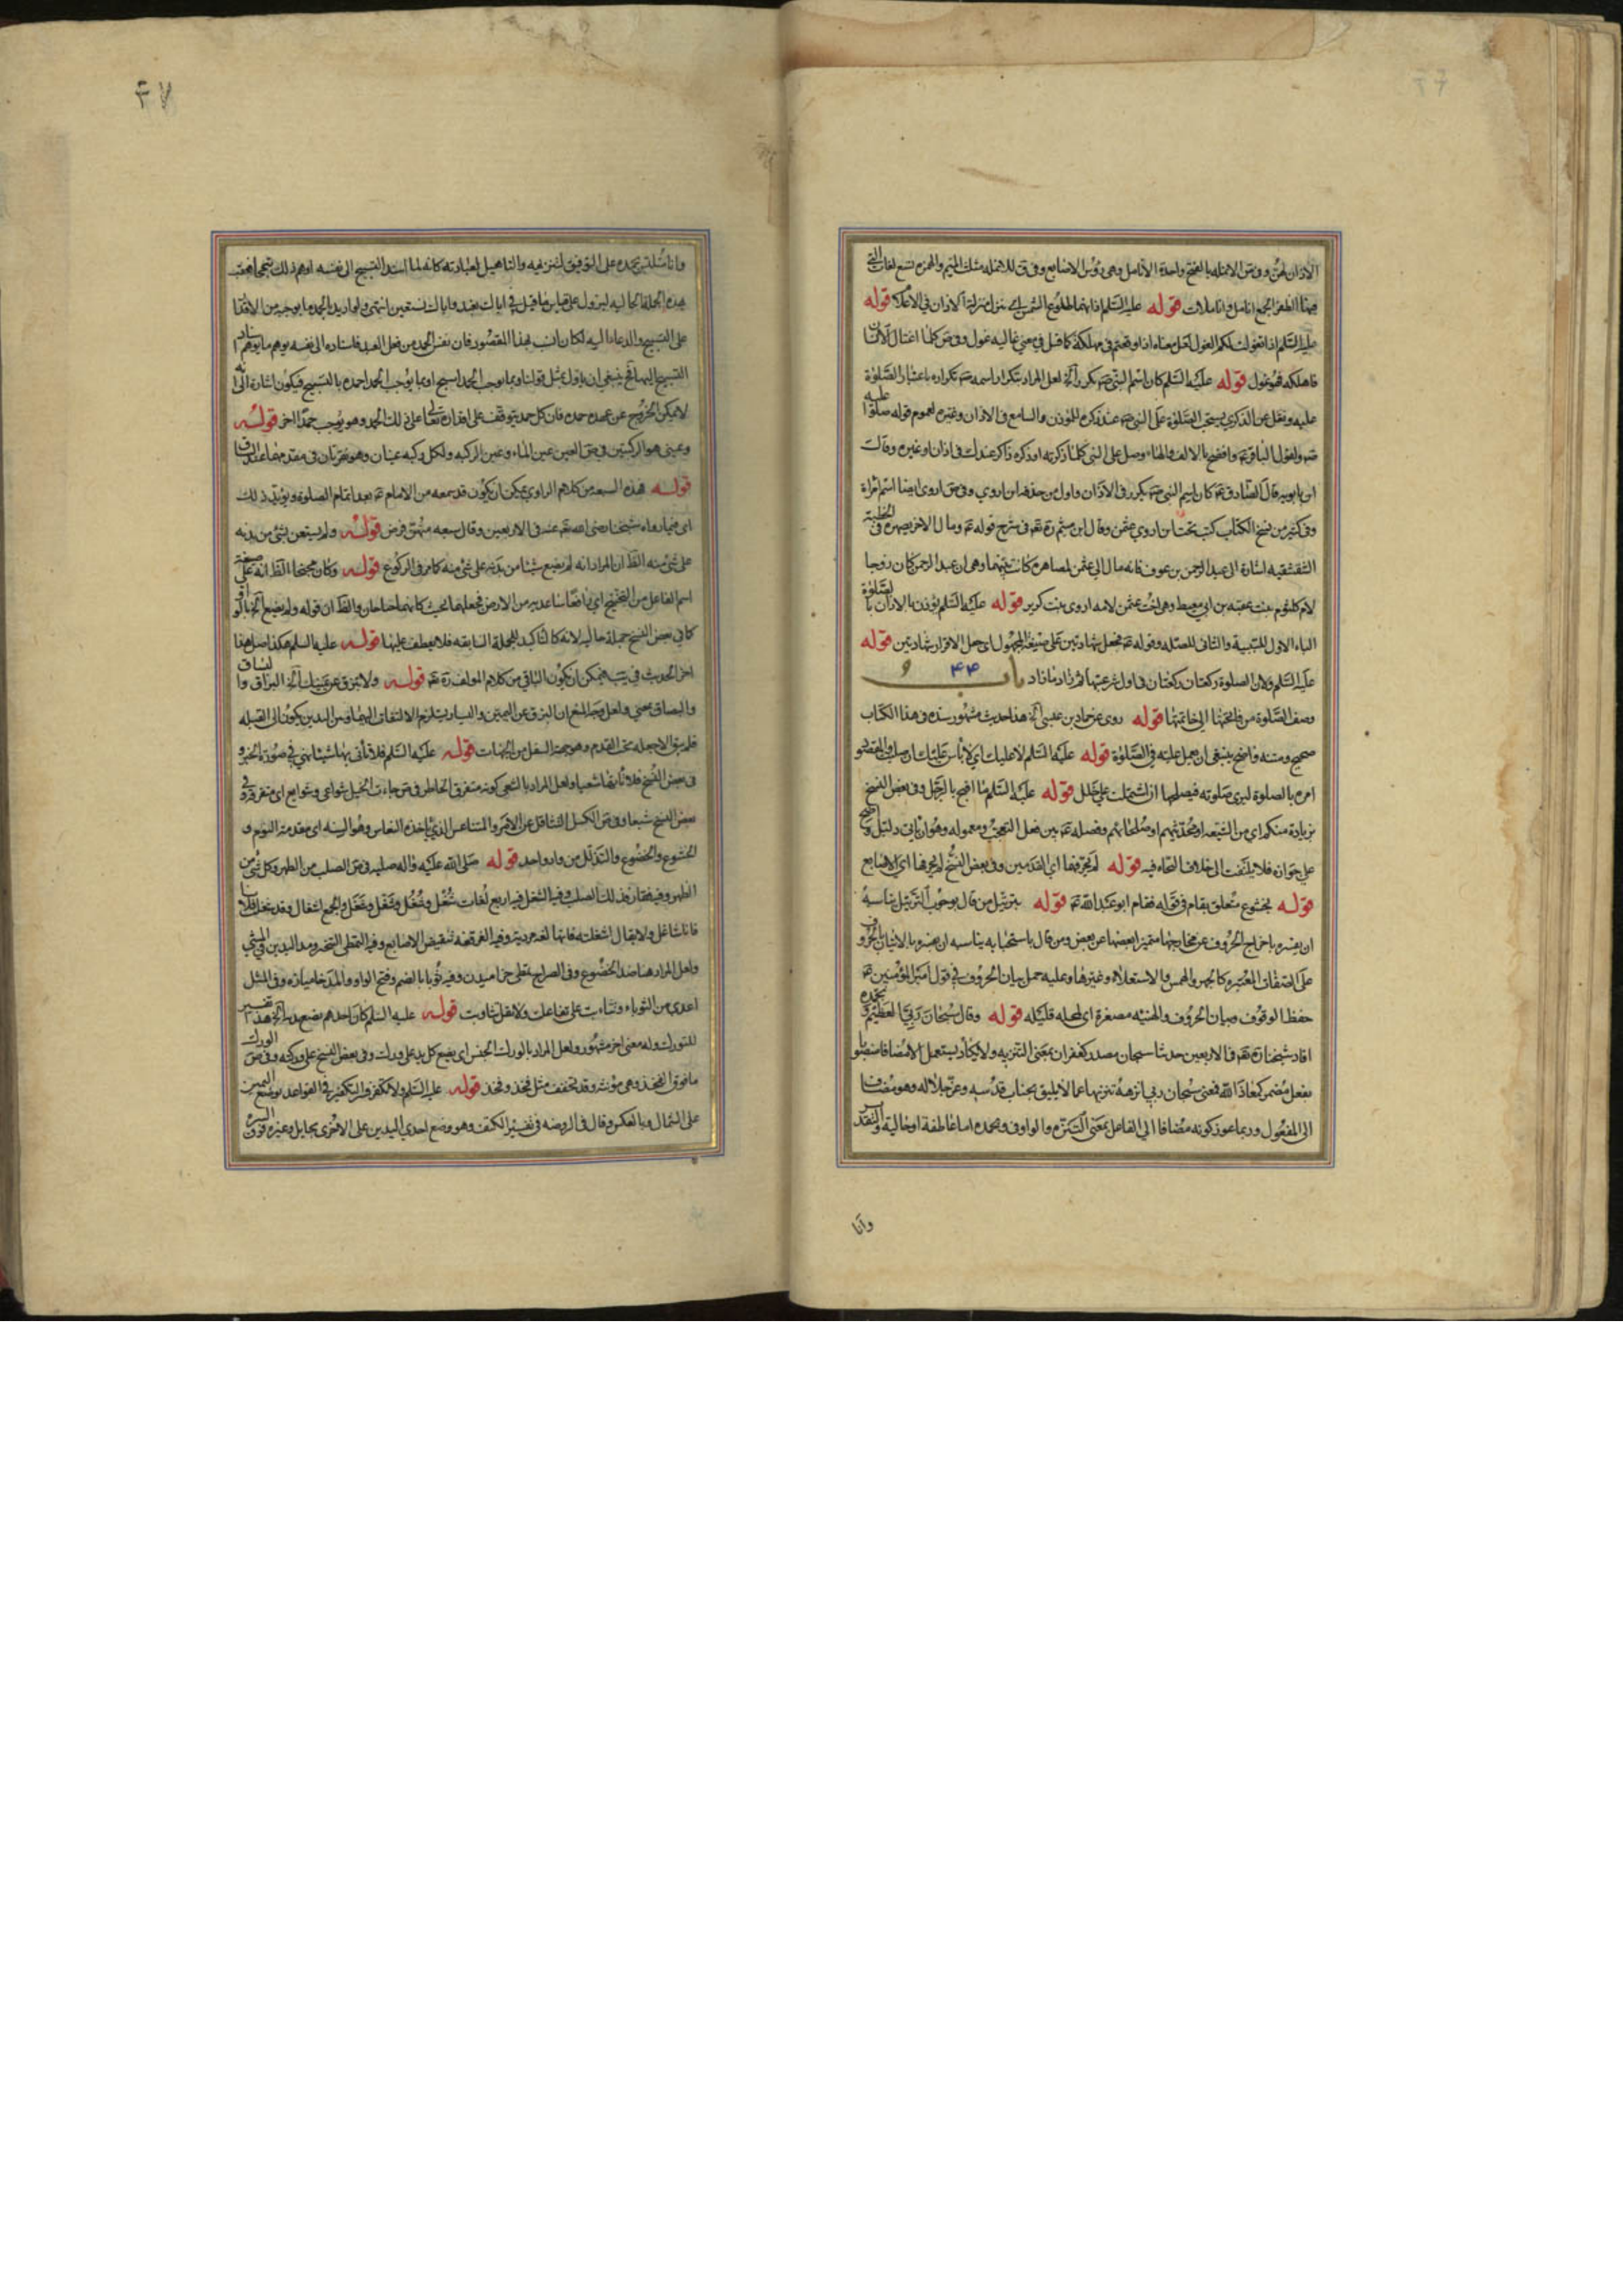 الاذان لهن وفى ص الانملة بالفتح واحدة الانامل وهى رؤس الاصابع وفى ق الانملة مثلث الميم والهمزه تسع لغات التى
فيها الظفر الجمع انامل وانملات قوله عليه السلم اذانهما طلوع الشمس اى منزل منزلة الاذان فى الاعلام قوله
عليه السلم اذا تغولت لكم الغول لعل معناه اذا اوقعتم فى مهلكة كما قيل فى معنى غاليه غول وفى ص كلما اغتال الانسان
فاهلكه فهو غول قوله عليه السلم كان اسم النبى ص يكرر آلخ لعل المراد بتكرار اسمه ص تكراره باعتبار الصلوة
عليه ونقل عن الذكرى يستحب الصلوة على النبى ص عند ذكره للمؤذن والسامع فى الاذان وغيره لعموم قوله صلوا عليه
ولقول الباقر ع وافصح بالالف والهاء وصل على النبى كلما ذكرته او ذكره ذاكر عندك فى اذان او غيره وقال
ابن بابويه قال الصادق ع كان اسم النبى ص يكرر فى الاذان واول من حذفه ابن اروى وفى ص اروى ايضا اسم امراة
وفى كثير من نسخ الكتاب كتب تحت ابن اروى عثمن وقال ابن ميثم ره فى شرح قوله ع ومال الاخر لصهره فى الخطبة
الشقشقيه اشارة الى عبد الرحمن بن عوف فانه مال الى عثمن لمصاهرة كانت بينهما وهى ان عبد الرحمن كان زوجا
لام كلثوم بنت عقبه بن ابى معيط وهى اخت عثمن لامه اروى بنت كريز قوله عليه السلم يؤذن بالاذان بالصلوة
الباء الاول للسببية والثانى للصله وقوله ع فجعل شهادتين على صيغة المجهول اى جعل الاقرار شهادتين قوله
عليه السلم ولان الصلوة ركعتان ركعتان فى اول شرعيتها ثم زاد ما زاد باب ۴۴ و
وصف الصلوة من فاتحتها الى خاتمتها قوله روى عن حماد بن عيسى آلخ هذا حديث مشهور سنده فى هذا الكتاب
صحيح ومتنه واضح ينبغى ان يعمل عليه فى الصلوة قوله عليه السلم لا عليك اى لا باس عليك ان صليت والمقصود
امره بالصلوة ليرى صلوته فيصلحها ان اشتملت على خلل قوله عليه السلم ما اقبح بالرجل وفى بعض النسخ
بزيادة منكم اى من الشيعه او محدثيهم او صلحائهم وفصله ع بين فعل التعجب ومعموله وهو ان ياتى دليل واضح
على جوازه فلا يلتفت الى خلاف النحاه فيه قوله لم يحرفهما اى القدمين وفى بعض النسخ لم يحرفها اى الاصابع
قوله بخشوع متعلق بقام فى قوله فقام ابو عبد الله ع قوله بترتيل من قال بوجوب الترتيل يناسبه
ان يفسره باخراج الحروف عن مخارجها متميزا بعضها عن بعض ومن قال باستحبابه يناسبه ان يفسره بالاتيان بالحروف
على الصفات المعتبره كالجهر والهمس والاستعلاء وغيرها وعليه حمل بيان الحروف فى قول امير المؤمنين ع
حفظ الوقوف وبيان الحروف والهنيئه مصغرة اى لمحله قليله قوله وقال سبحان ربى العظيم وبحمده
افاد شيخنا ره فى الاربعين حديثا سبحان مصدر كغفران بمعنى التنزيه ولا يكاد يستعمل الا مضافا منصوبا
بفعل مضمر كمعاذ الله فمعنى سبحان ربى انزهه تنزيها عما لا يليق بجناب قدسه وعز جلاله وهو مضاف
الى المفعول وربما جوز كونه مضافا الى الفاعل بمعنى التنزه والواو فى وبحمده اما عاطفة او حالية والتقدير
وانا
۴۷
وانا متلبس بحمده على التوفيق لتنزيهه والتاهيل لعبادته كانه لما اسند التسبيح الى نفسه اوهم ذلك تبجحا فعقبه
بهذه الجملة الحاليه ليزول على قياس ما قيل فى اياك نعبد واياك نستعين انتهى ولو اريد بالحمد ما يوجبه من الاقدار
على التسبيح والدعاء اليه لكان انسب لهذا المقصود فان نفس الحمد من فعل العبد فاسناده الى نفسه يوهم ما يوهم اسناد
التسبيح اليها فح ينبغى ان ياول بمثل قولنا وبما يوجب الحمد اسبح او بما يوجب الحمد احمده بالتسبيح فيكون اشارة الى انه
لا يمكن الخروج عن عهده حمده فان كل حمد يتوقف على اقداره تعالى على ذلك الحمد وهو يوجب حمدا اخر قوله
وعينى هو الركبتين فى ص العين عين الماء وعين الركبه ولكل ركبه عينان وهما نقرتان فى مقدمها عند الساق
قوله هذه السبعه من كلام الراوى يمكن ان يكون قد سمعه من الامام ع بعد اتمام الصلوة ويؤيد ذلك
اى فيما رواه شيخنا رضى الله عنه فى الاربعين وقال سبعه منها فرض قوله ولم يستعن بشئ من بدنه
على شئ منه الظ ان المراد انه لم يضع شيئا من بدنه على شئ منه كما مر فى الركوع قوله وكان مجنحا الظ انه على صيغة
اسم الفاعل من التجنيح اى رافعا ساعديه من الارض فجعلهما بحيث كانهما جناحان والظ ان قوله ولم يضع آلخ بالواو
كما فى بعض النسخ جملة حاليه لانه كالتاكيد للجملة السابقه فلا يعطف عليها قوله عليه السلم هكذا صل هذا
اخر الحديث فى يب فيمكن ان يكون الباقى من كلام المولف ره قوله ولا تبزق عن يمينك آلخ البزاق والبساق
والبصاق بمعنى ولعل وجه المنع ان البزق عن اليمين واليسار يستلزم الالتفات اليهما ومن اليدين يكون الى القبله
فلم يبق الا جعله تحت القدم وهو جهة السفل من الجهات قوله عليه السلم فلا تأتى بها شيئا نهى فى صورة الخبر وفى
بعض النسخ شبعا وفى ص الكسل التثاقل عن الامر والمتناعس الذى ياخذه النعاس وهو الوسنه اى مقدمة النوم و
الخشوع والخضوع والتذلل من واد واحد قوله صلى الله عليه واله صلبه فى ص الصلب من الظهر وكل شئ من
الظهر وفيه فقار فذلك الصلب وفيه الشغل فيه اربع لغات شغل وشغل وشغل وشغل والجمع اشغال وقد شغلت فلانا
فانا شاغل ولا يقال اشغلته فانها لغة رديئة وفيه الفرقعة تنقيض الاصابع وفيه التمطى التبختر ومد اليدين فى المشى
ولعل المراد هنا ضد الخضوع وفى الصراح تمطى خراميدن وفيه ثوباء بالضم وفتح الواو والمد خاميازه وفى المثل
اعدى من الثوباء وتثاءبت على تفاعلت ولا تقل تثاوبت قوله عليه السلم كان احدهم يضع يديه آلخ هذا تفسير
للتورك وله معنى اخر مشهور ولعل المراد بالورك الجنس اى يضع كل يد على ورك وفى بعض النسخ على وركيه وفى ص الورك
ما فوق الفخذ وهى مؤنثه وقد تخفف مثل فخذ وفخذ قوله عليه السلم ولا تكفر والتكفير فى القواعد بوضع اليمين
على الشمال وبالعكس وقال فى الروضه فى تفسير الكتف وهو وضع احدى اليدين على الاخرى بحايل وغيره فوق السره